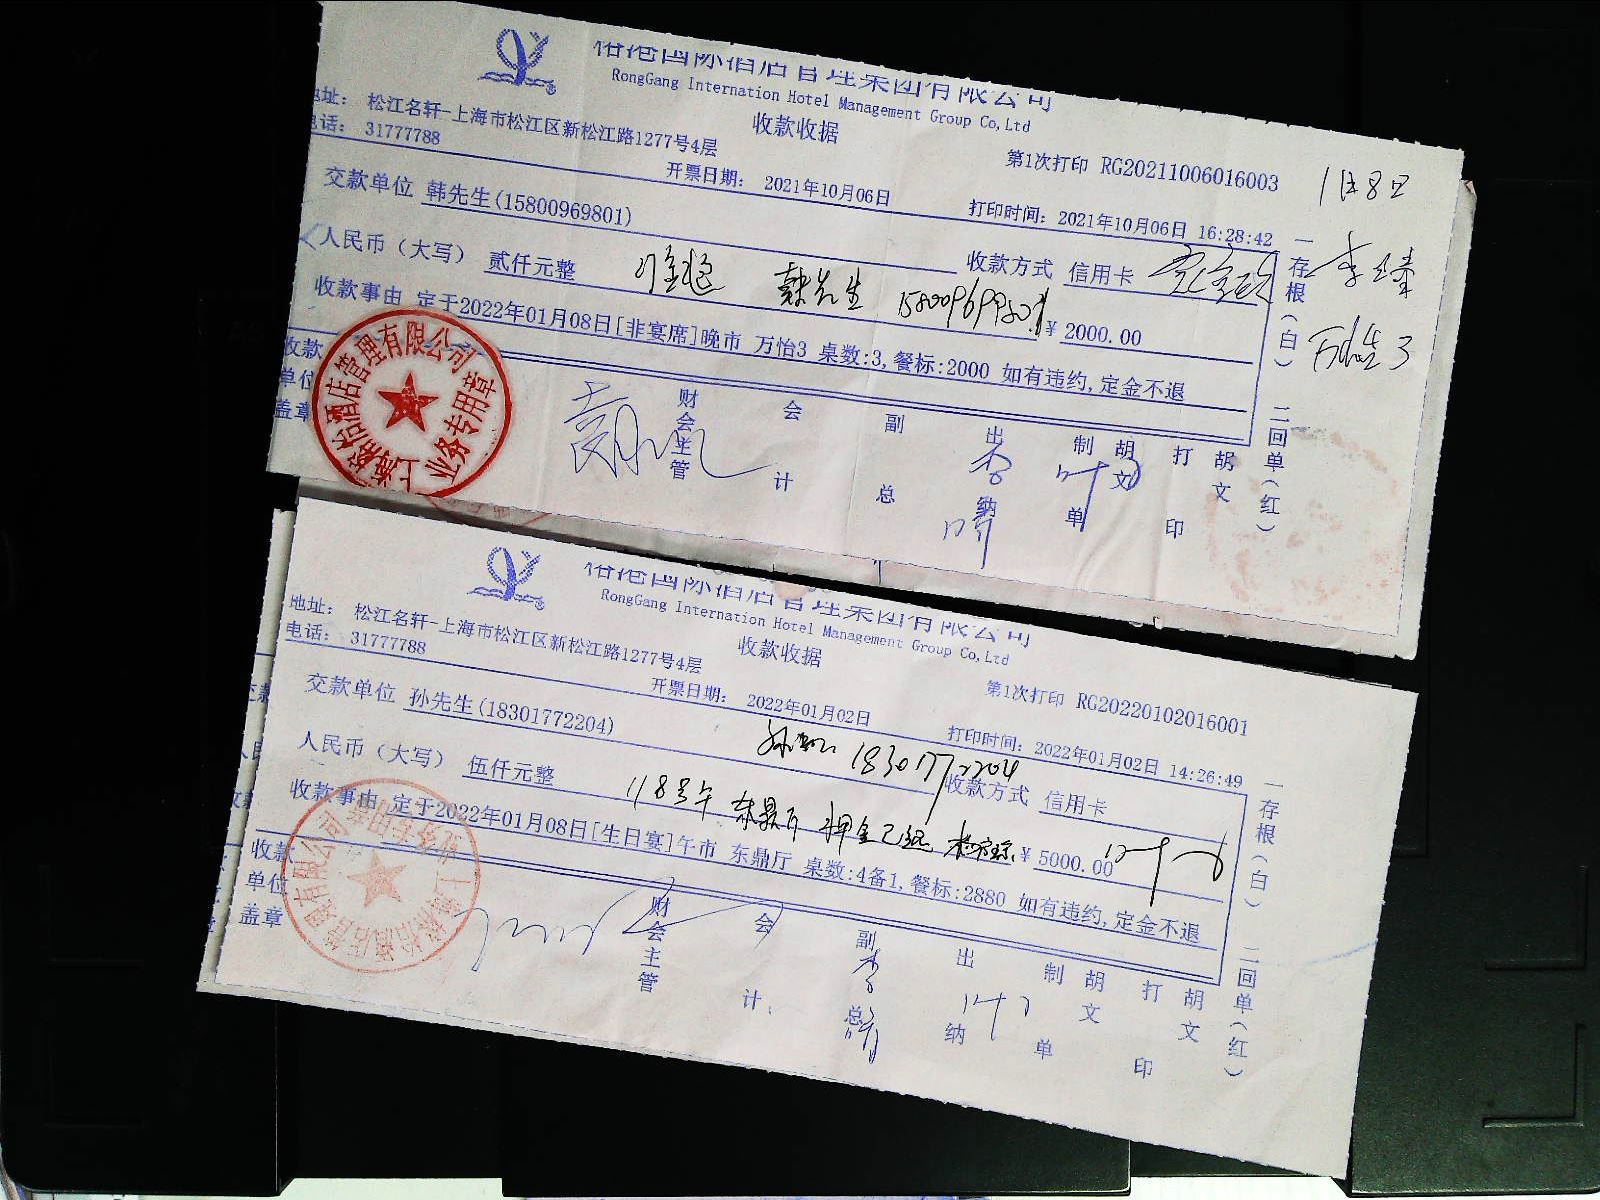 国际酒店管理集团有限公司
RongGang Internation Hotel Management Group Co,Ltd
地址： 松江名轩-上海市松江区新松江路1277号4层
电话： 31777788
收款收据
第1次打印 RG20211006016003
1月8日
开票日期： 2021年10月06日
打印时间： 2021年10月06日 16:28:42
交款单位 韩先生(15800969801)
收款方式 信用卡
人民币（大写） 贰仟元整
韩先生
￥ 2000.00
收款事由 定于2022年01月08日[非宴席]晚市 万怡3 桌数:3,餐标:2000 如有违约,定金不退
万怡3
一存根(白) 二回单(红)
收款单位盖章
酒店管理有限公司
业务专用章
财会主管 会计 副总 出纳 制单 胡文 打印 胡文
国际酒店管理集团有限公司
RongGang Internation Hotel Management Group Co,Ltd
地址： 松江名轩-上海市松江区新松江路1277号4层
电话： 31777788
收款收据
第1次打印 RG20220102016001
开票日期： 2022年01月02日
打印时间： 2022年01月02日 14:26:49
交款单位 孙先生(18301772204)
18301772204
收款方式 信用卡
人民币（大写） 伍仟元整
1/8号午 东鼎厅 押金已退
￥ 5000.00
收款事由 定于2022年01月08日[生日宴]午市 东鼎厅 桌数:4备1,餐标:2880 如有违约,定金不退
一存根(白) 二回单(红)
收款单位盖章
财会主管 会计 副总 出纳 制单 胡文 打印 胡文